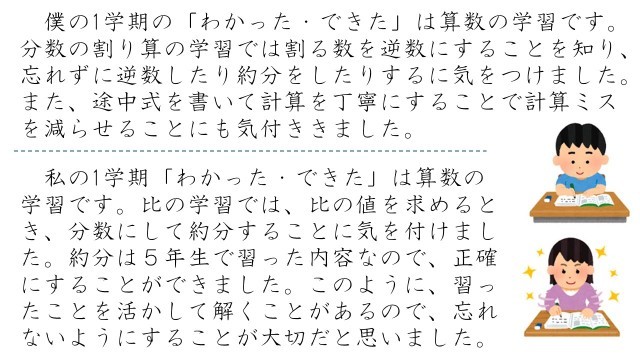 僕の1学期の「わかった・できた」は算数の学習です。
分数の割り算の学習では割る数を逆数にすることを知り、
忘れずに逆数したり約分をしたりするに気をつけました。
また、途中式を書いて計算を丁寧にすることで計算ミス
を減らせることにも気付ききました。
私の1学期「わかった・できた」は算数の
学習です。比の学習では、比の値を求めると
き、分数にして約分することに気を付けまし
た。約分は５年生で習った内容なので、正確
にすることができました。このように、習っ
たことを活かして解くことがあるので、忘れ
ないようにすることが大切だと思いました。